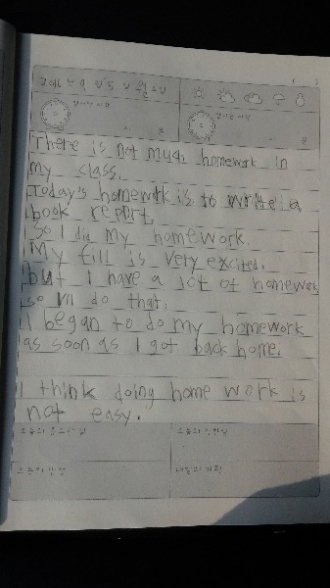 There is not much homework in
my class.
Today's homework is to write a
book report.
So I did my homework.
My fill is very excited.
but I have a lot of homework
so I'll do that.
I began to do my homework
as soon as I got back home.
I think doing home work is
not easy.